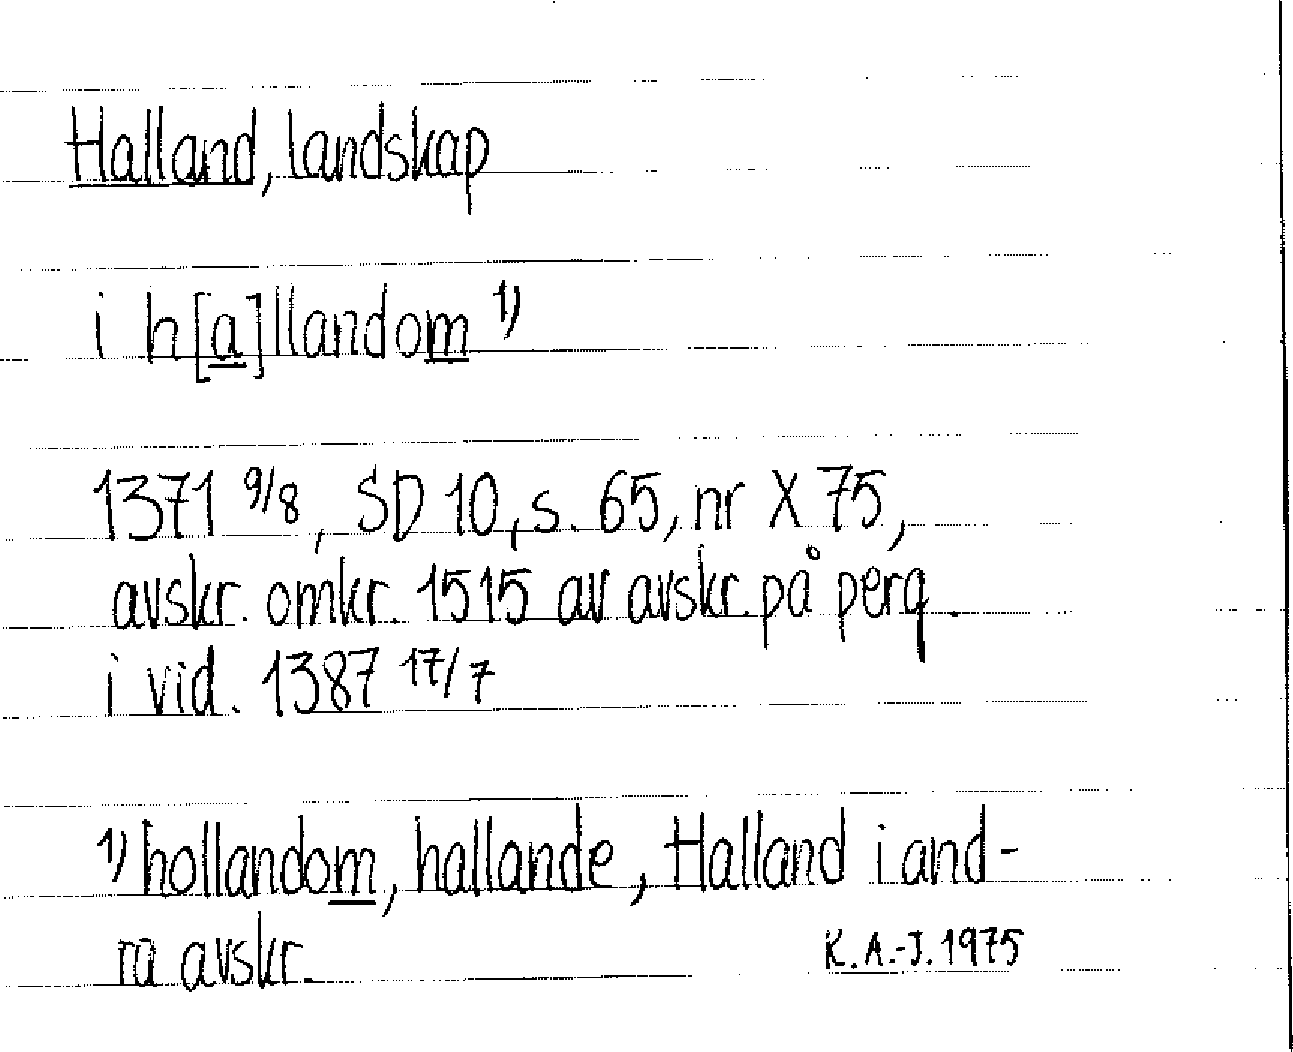 Halland, landskap
i h[a]llandom 1)
1371 9/8, SD 10, s. 65, nr X 75,
avskr. omkr. 1515 av avskr. på perg.
i vid. 1387 17/7
1) hollandom, hallande, Halland i and-
ra avskr.
K.A.-J. 1975